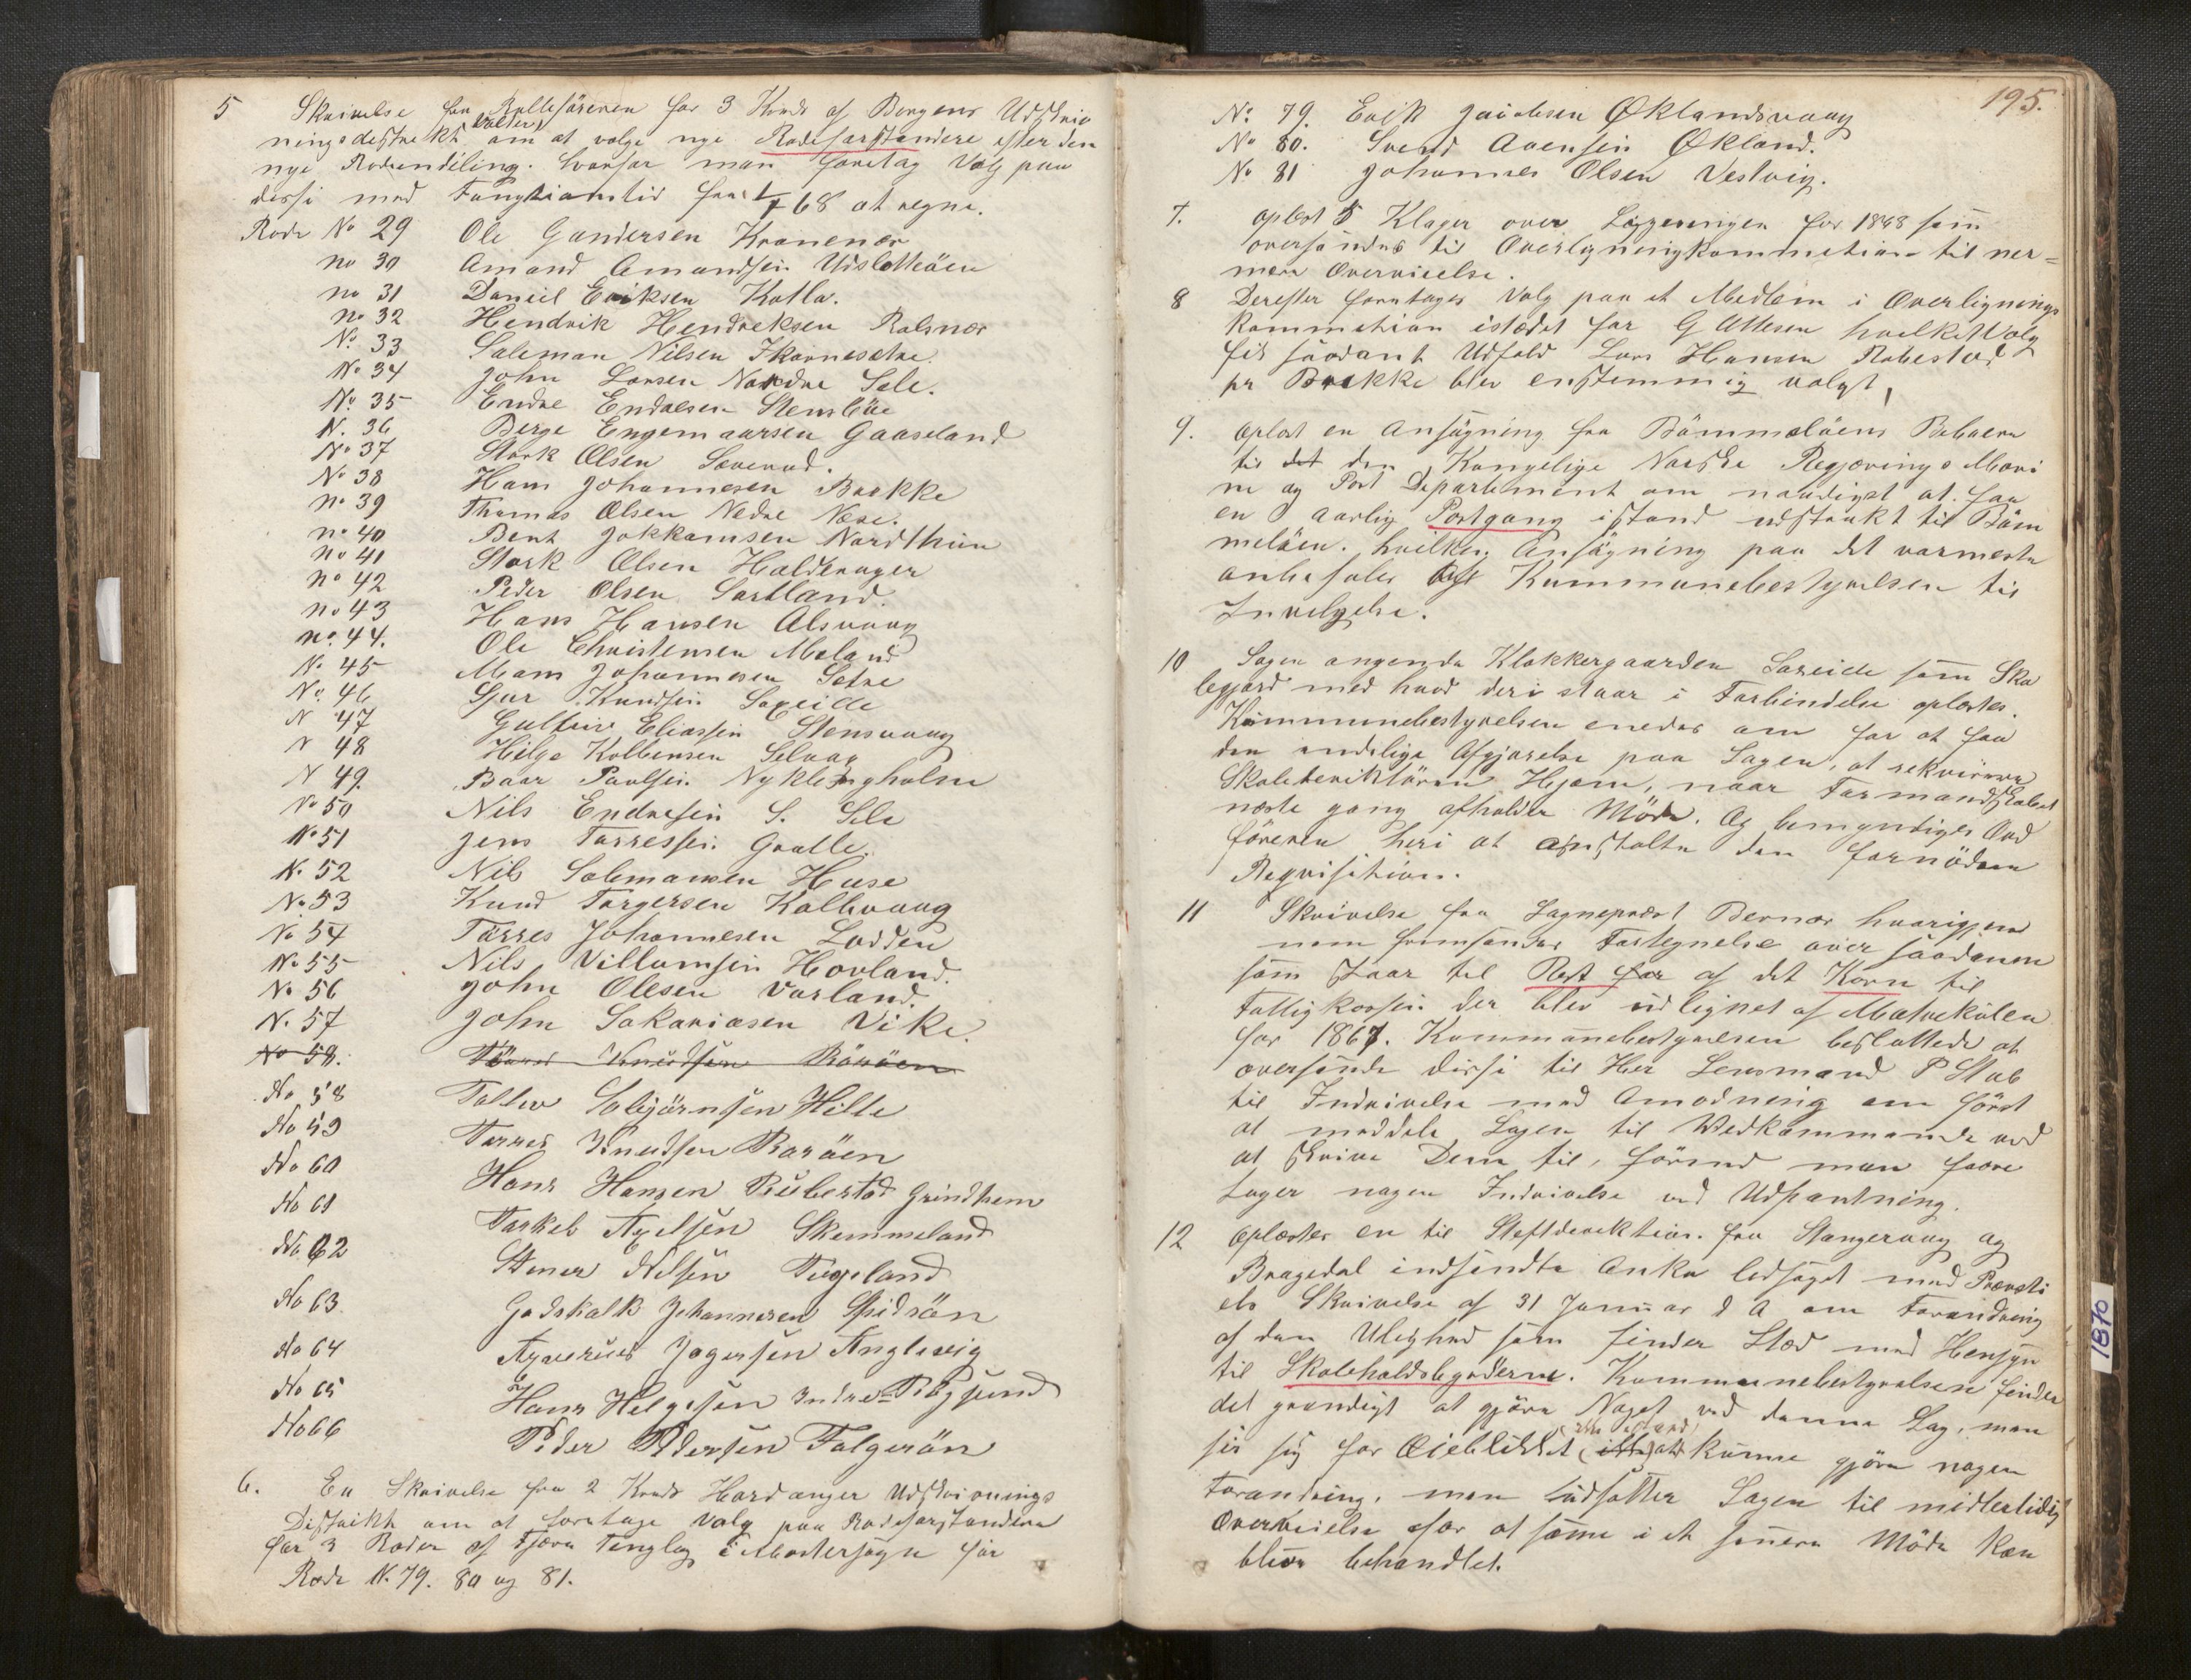 5 Skrivelse fra Rulleföreren for 3 Kreds af Bergens Udskriv
ningsdestrekt om at velge nye Rodeforstandere efter den
nye Rodeindeling. hvorfor man foretog Valg paa
dessi med Fungtionstid fra 1/4 68 at regne.
Rode No 29 Ole Gundersen Kranenes
no 30 Amand Amundsen Udslettöen
no 31 Daniel Eriksen Katla.
no 32 Hendrik Hendreksen Rolsnes
No 33 Saleman Nilsen
No 34 John Larsen Nordre Sele.
No 35 Endre Endresen
N. 36 Berge Engemaarsen Gaaseland
No 37 Stork Olsen
No 38 Hans Johannesen Brekke
no 39 Thomas Olsen Nedre Nese.
no 40 Bent Jokkamsen Nordthun
no 41 Stork Olsen Halderager
no 42 Peder Olsen Sortland.
no 43 Hans Hansen Alsvaag
no. 44. Ole Christensen Meland
No 45 Mons Johannesen Setre
No. 46 Sjur Knudsen Saxeide
N 47 Gulleiv Eliassen Stensvaag
N 48 Helge Kolbensen Selvaag
N 49. Baar Paulsen Nyklingholm
No 50 Nils Endresen S. Sele
No 51 Jens Tørressen Gralle
N. 52 Nils Salemansen Huse
No 53 Knud Torgersen Kallevaag
No 54 Törres Johannesen Lodden
No 55 Nils Villumsen Hovland.
No 56 John Olesen Vorland.
N. 57 John Sakariasen Vike.
No 58. Törres Knudsen Röröen
No 58 Tollev Salbjörnsen Hille
No 59 Tørres Knudsen Roröen
No 60 Hans Hansen Rübestad Grindhem
No 61 Torkel Axelsen Skemmeland
No 62 Stener Nilsen
No 63 Godskalk Johannesen Spidsön
No 64 Jogensen Anglevig
No 65 Hans Helgesen Indre
No 66 Peder Pedersen Folgerön
6. En Skrivelse fra 2 Kreds Hardanger Udskrivnings
Distrikt om at foretage Valg paa Rodeforstandere
for 3 Roder af Fjære Tinglag i Mostersogn for
Rode N. 79. 80 og 81.
195.
No 79. Erik Jacobsen Øklandsvaag
No 80. Svend Avensen Økland.
No 81 Johannes Olsen Vestvig.
7. oplæst 5 Klager over Ligeningen for 1868 som
oversendes til Overligningkommetion til ner=
mere Overveielse.
8 Derefter foretages Valg paa et Medlem i Overlignings
kommetion istedet for G Ottesen hvelket Valg
fik saadant Udfald Lars Hansen Robestad
pr Brekke blev enstemmig valgt,
9. oplæst en Ansögning fra Bömmelöens Beboere
til det den Kongelige Norske Regjerings Mari
ne og Post Departement om naadigst at faa
en aarlig Postgang istand udstrakt til Böm
melöen. hvilken Ansögning paa det varmeste
anbefales af Kommunebestyrelsen til
Indvelgelse.
10 Sagen angende Klokkergaarden Saxeide som Sko
legjord med hvad deri staar i Forbindelse oplæstes.
Kommunebestyrelsen enedes om for at faa
den endelige Afgjörelse paa Sagen, at rekvirere
Skoledirektören Hjem, naar Formandskabet
neste gang afholder Möde. Og bemyndiges Ord
föreren heri at anstalte den fornödne
Reqvisition.
11 Skrivelse fra Sogneprest Berner hvorigjen
nem fremsendes Fortegnelse over saadanne
som staar til Rest for af det Korn til
Fattigkassen der blev udlignet af Matrekülen
for 1867. Kommunebestyrelsen besluttede at
oversende dissi til Her Lensmand P Stub
til Inddrivelse med Anmodning om först
at meddele Sagen til Wedkommende ved
at skrive Dem til, förend man foore
tager nogen Inddrivelse ved Udpantning.
12 oplæstes en til Stiftderektion fra Stangervaag og
Bragedal indsendte Anke ledsaget med Provsti
ets Skrivelse af 31 Januar d A om Forandring
af den Uleghed som finder Sted med Hensyn
til Skoleholdsbyrderne. Kommunebestyrelsen finder
det grundigt at gjöre Noget ved denne Sag, men
ser sig for Øieblikket (ikke istand) at kunne gjöre nogen
Forandring, men udsetter Sagen til midlertidig
Overveielse for at samme i et senere Möde kan
blive behandlet.
1870